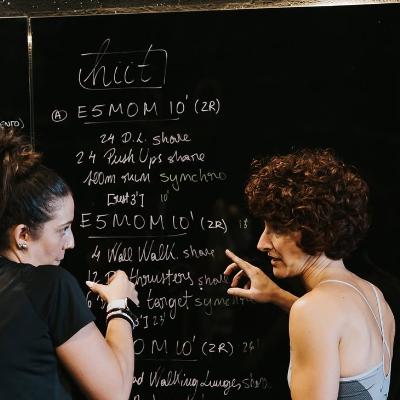 hiit
ENTO)
A E5MOM 10' (2R)
24 D.L. share
24 Push Ups share
400m run synchro
[rest 3'] 10'
E5MOM 10' (2R) 18
4 Wall Walk. share
12 thrusters share
target synchro
3'] 23'
OM 10' (2R)
Walking Lunges share